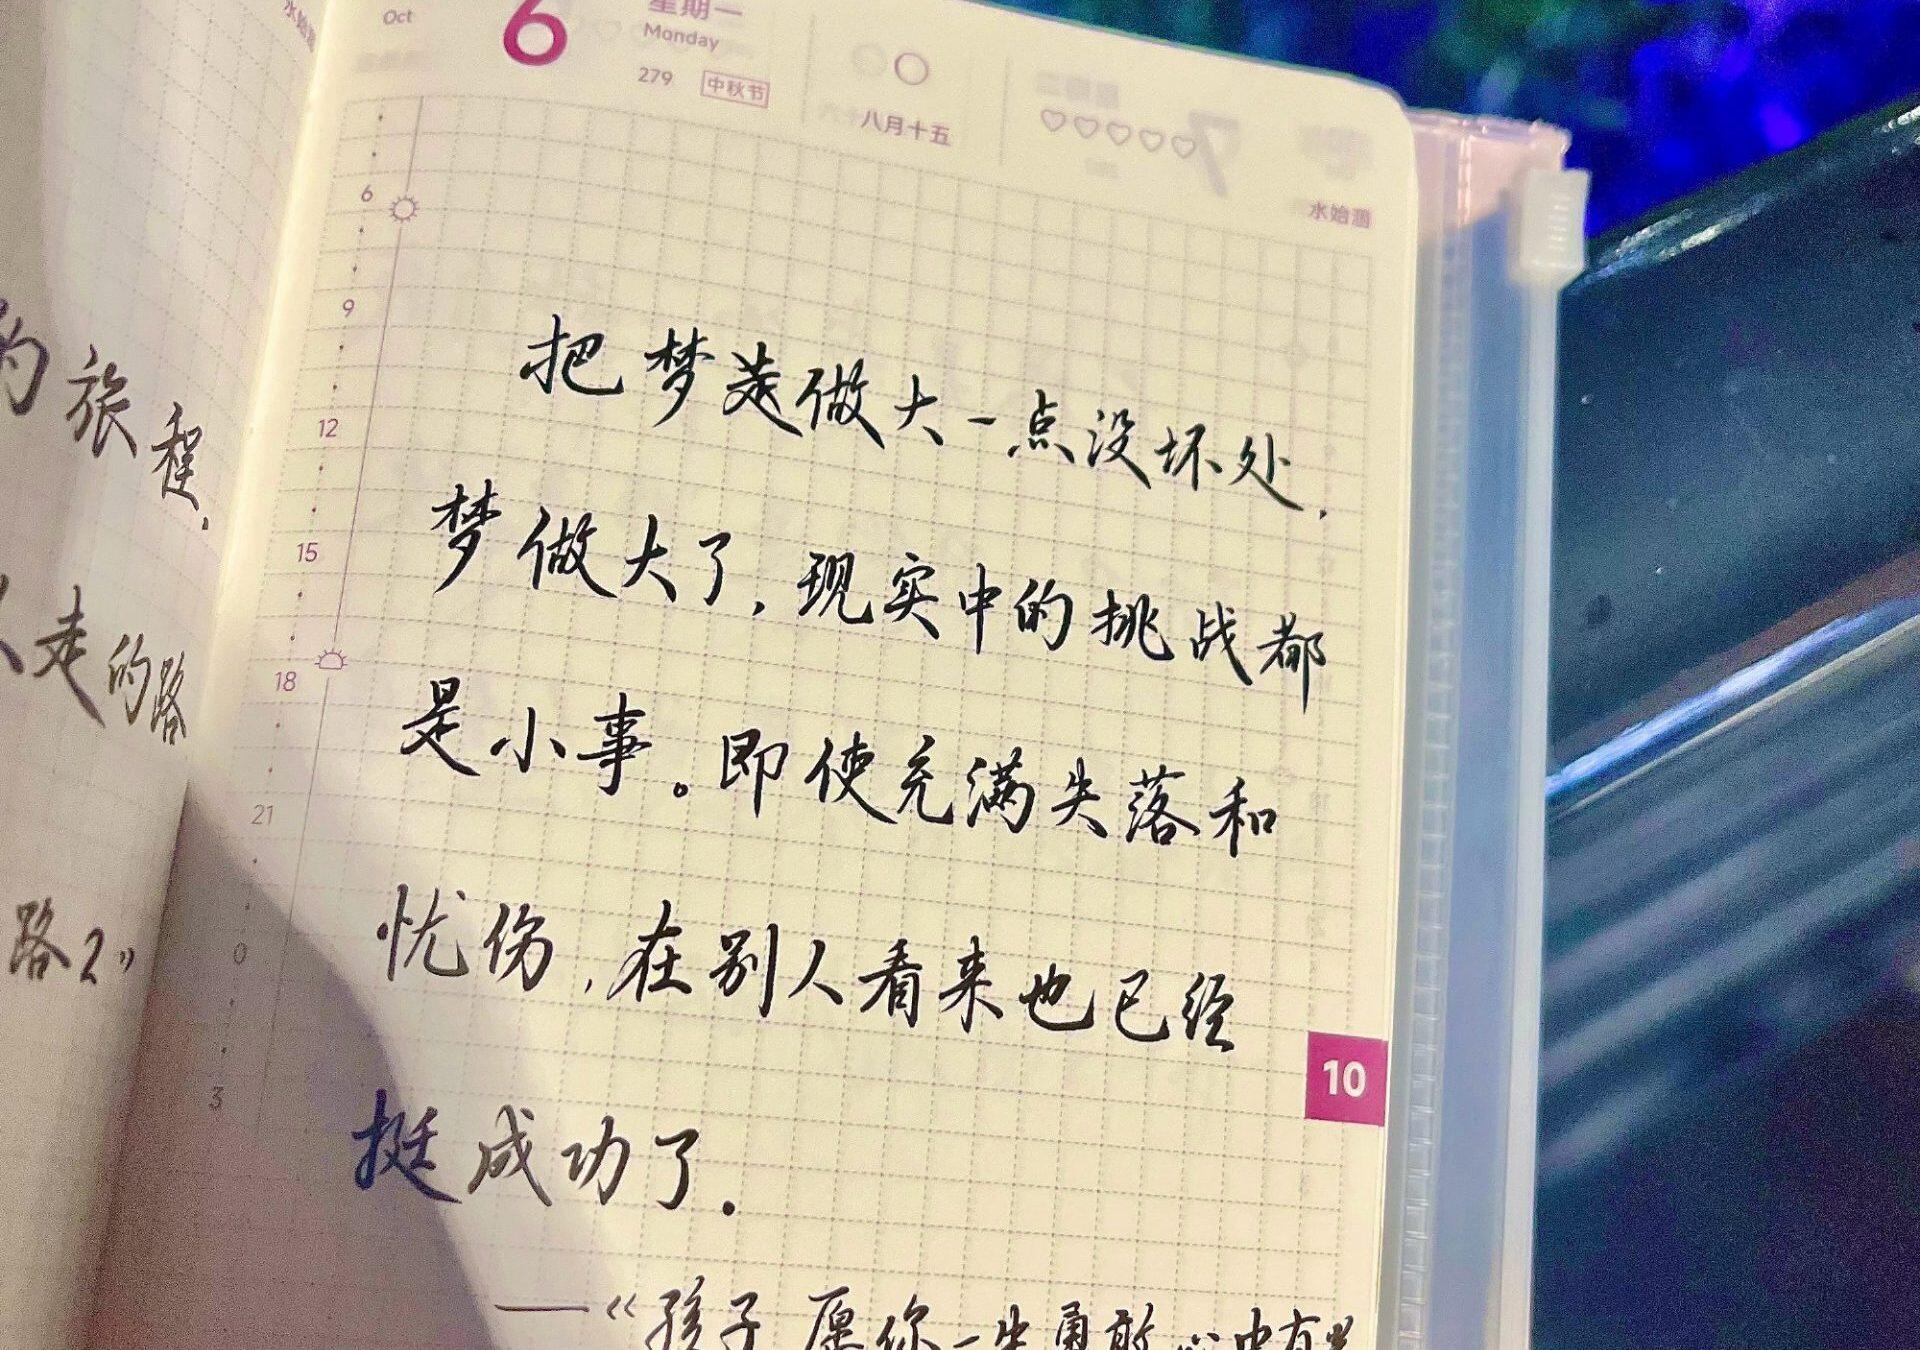 Oct
6
星期一
Monday
279
中秋节
八月十五
水始涸
6
9
12
15
18
21
0
3
旅程,
走的路
路2》
把梦想做大一点没坏处,
梦做大了,现实中的挑战都
是小事。即使充满失落和
忧伤,在别人看来也已经
挺成功了.
10
——《孩子愿你一生勇敢心中有